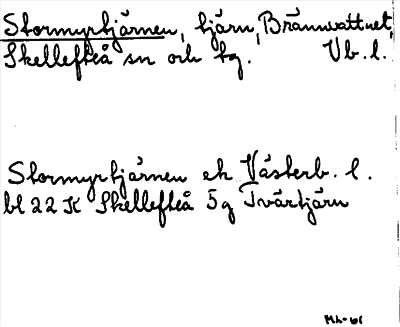 Stormyrtjärnen, tjärn, Brännvattnet,
Skellefteå sn och tg. Vb. l.
Stormyrtjärnen ek Västerb. l.
bl 22 K Skellefteå 5g Tvärtjärn